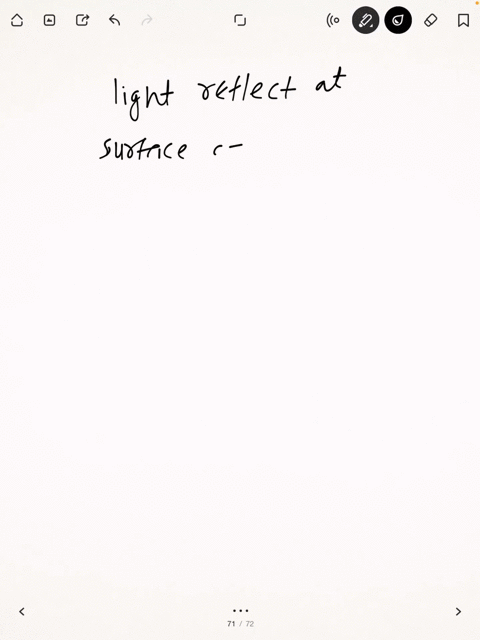 light reflect at
surface
71 / 72